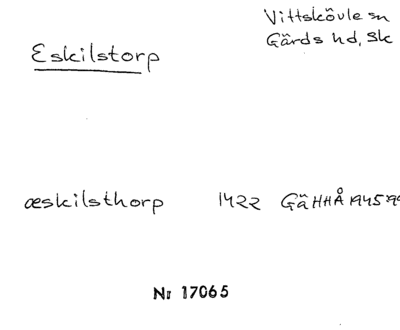 Eskilstorp
Vittskövle sn
Gärds hd, Sk
æskilsthorp 1422 GäHHÅ 1945
Nr 17065